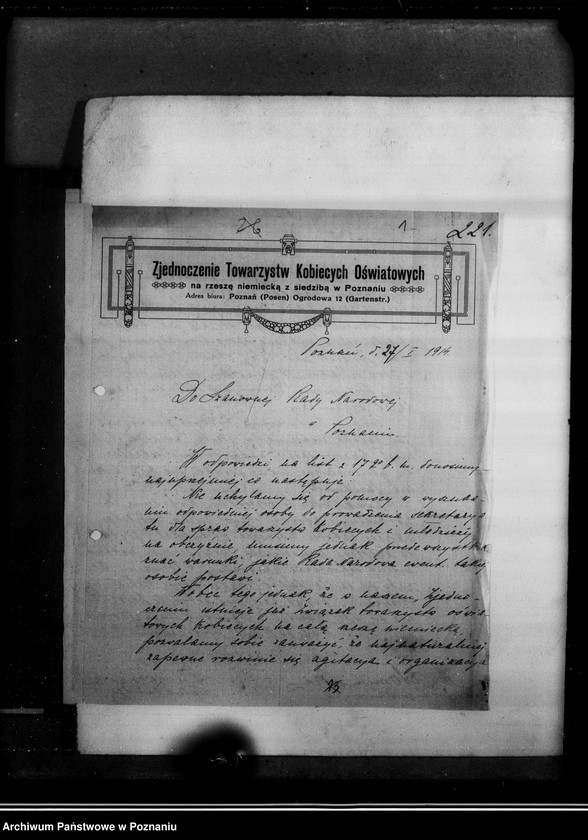 221.
Zjednoczenie Towarzystw Kobiecych Oświatowych
na rzeszę niemiecką z siedzibą w Poznaniu
Adres biura: Poznań (Posen) Ogrodowa 12 (Gartenstr.)
Poznań, d. 27/I 1914
Do Szanownej Rady Narodowej
w Poznaniu.
W odpowiedzi na list z 17 b. m. donosimy
najuprzejmiej co następuje
Nie uchylamy się od pomocy w wyszuka-
niu odpowiedniej osoby do prowadzenia sekretarya-
tu dla spraw towarzystw kobiecych i młodzieży
na obczyźnie, musimy jednak przedewszystkiem
znać warunki jakie Rada Narodowa event. takiej
osobie postawi.
Wobec tego jednak, że w naszem Zjedno-
czeniu istnieje już związek towarzystw oświa-
towych kobiecych na całą rzeszę niemiecką,
pozwalamy sobie zauważyć, że najnaturalniej
zapewne rozwinie się agitacya i organizacya
Archiwum Państwowe w Poznaniu